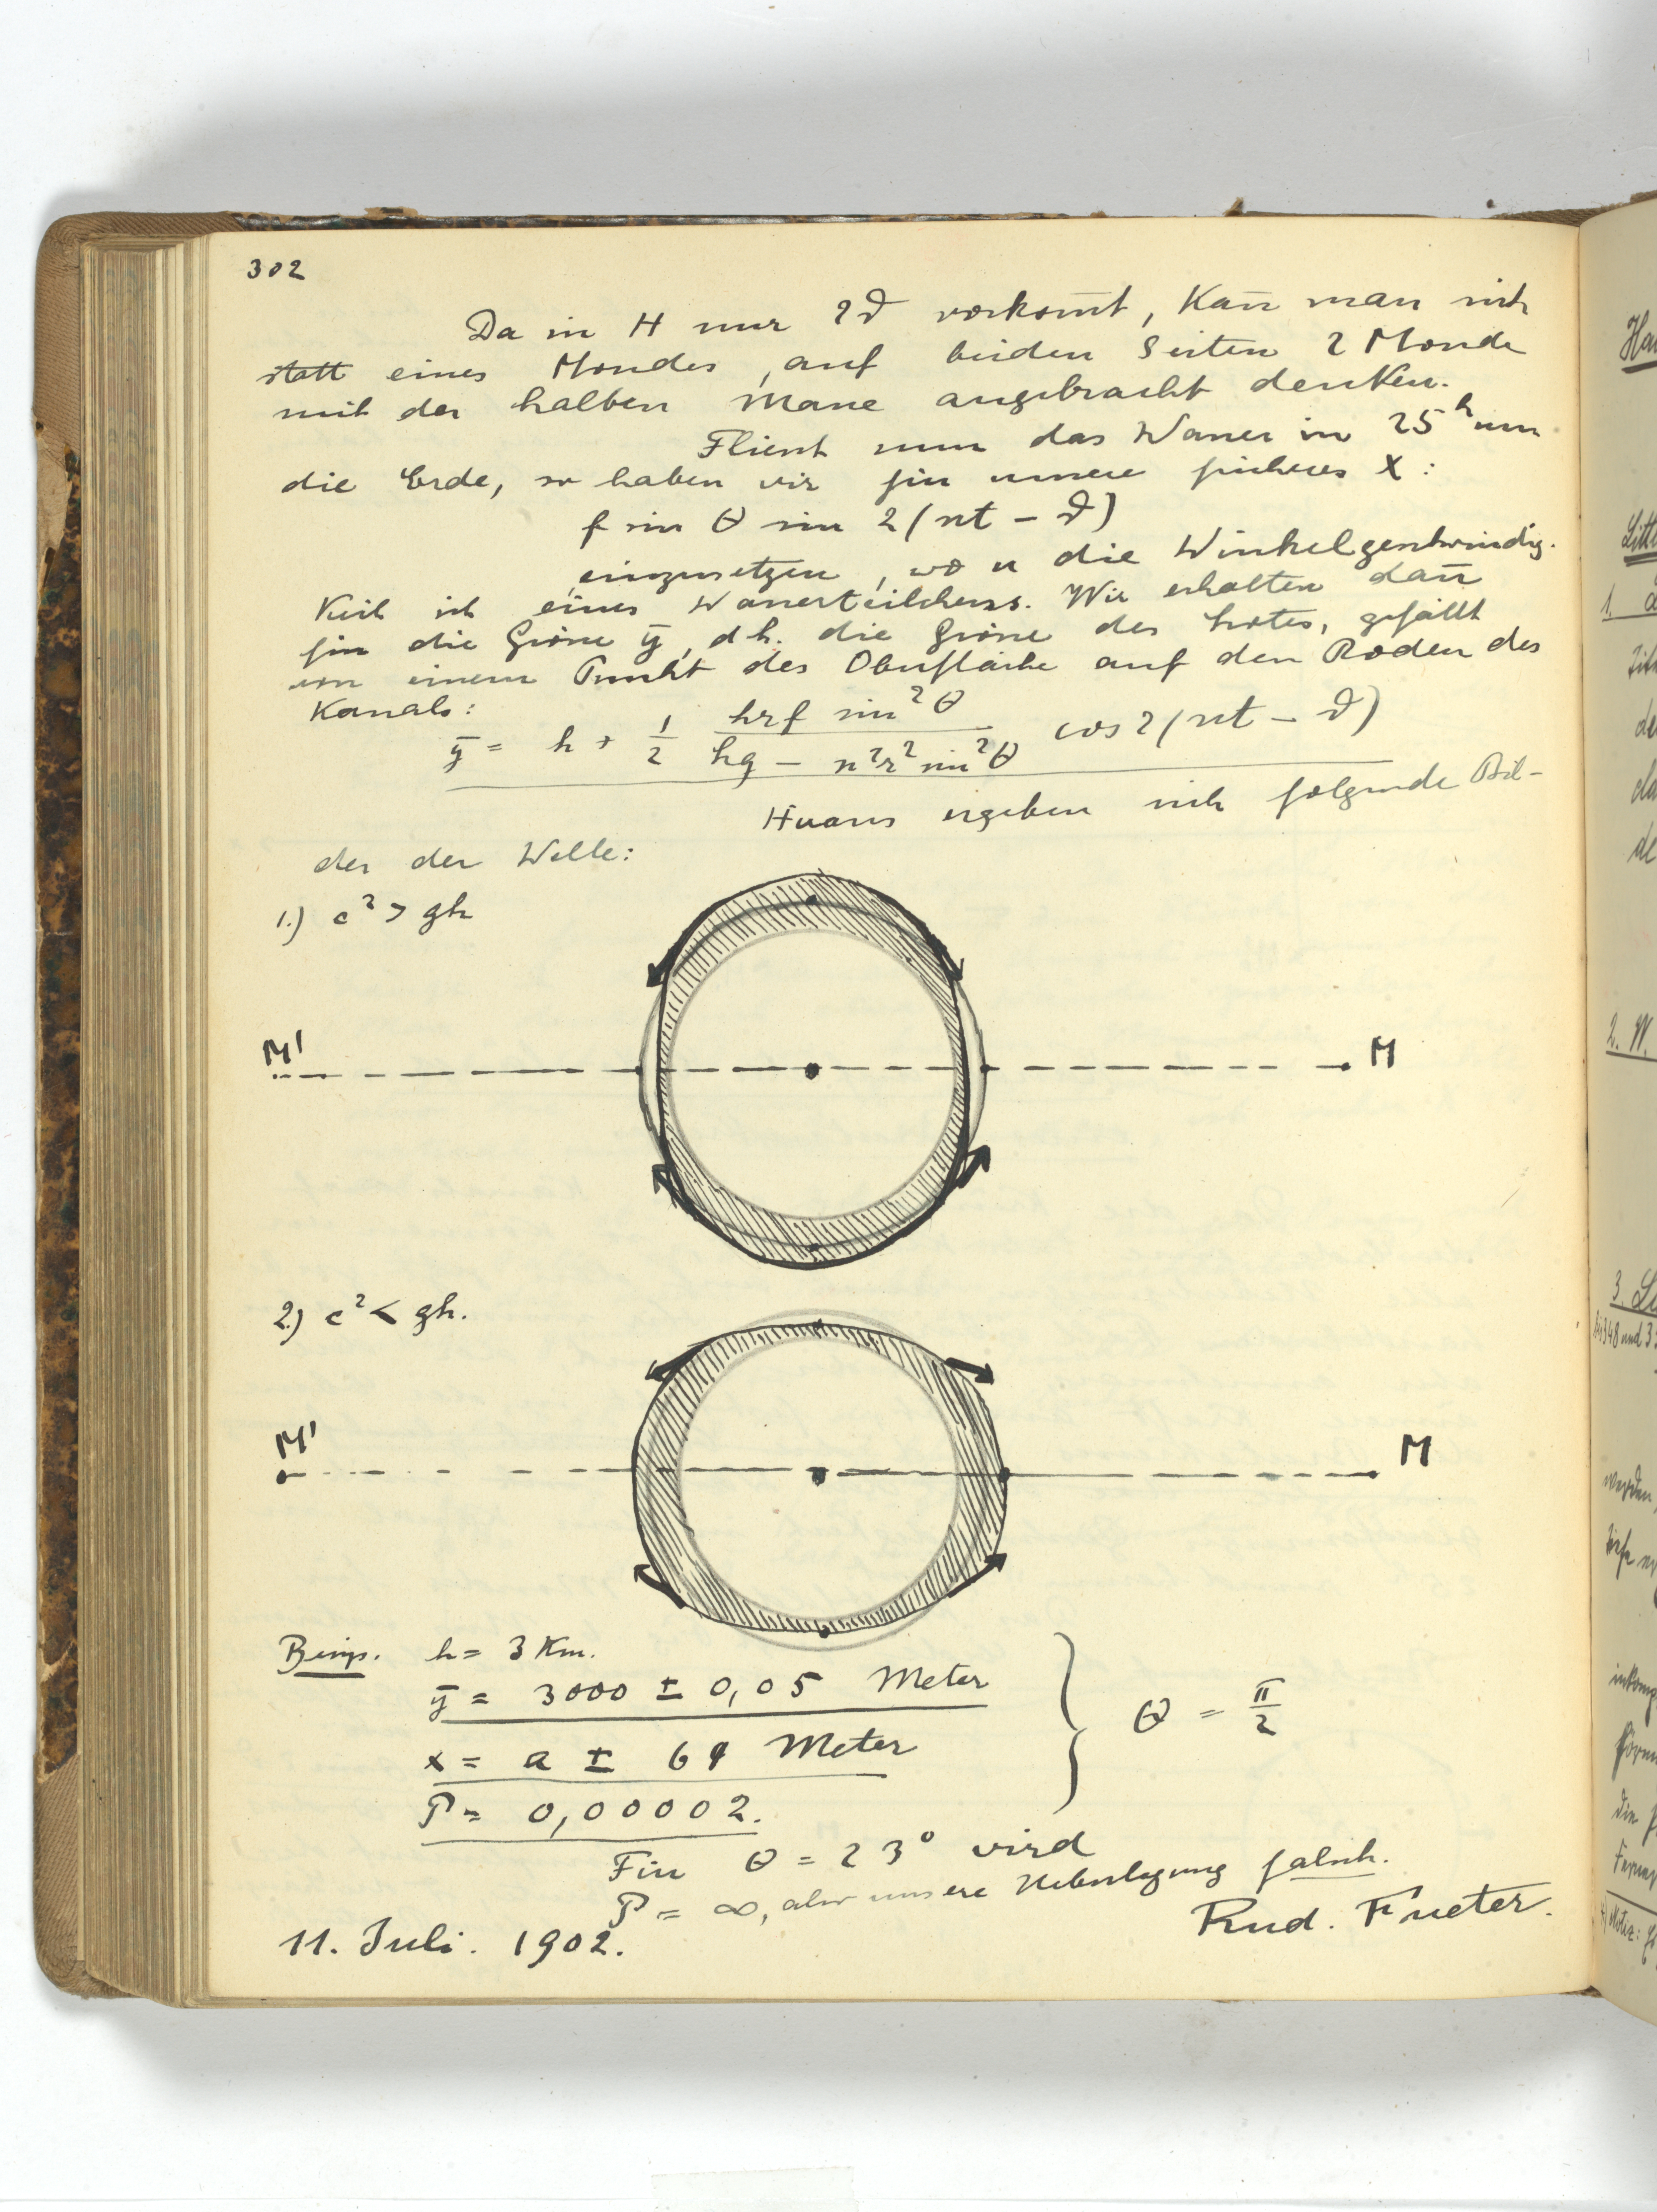 302
Da in H nur 2ϑ vorkom̄t, kan̄ man sich
statt eines Mondes, auf beiden Seiten 2 Monde
mit der halben Masse angebracht denken.
Fliesst nun das Wasser in 25ʰ um
die Erde, so haben wir für unsere früheres X:
f sin θ sin 2(nt − ϑ)
einzusetzen, wo n die Winkelgeschwindig-
keit ist eines Wasserteilchens. Wir erhalten dan̄
für die Grösse ȳ, d.h. die Grösse des Lotes, gefällt
von einem Punkt der Oberfläche auf den Boden des
Kanals:
ȳ = h + 1/2 hrf sin²θ / (hg − n²r² sin²θ) cos 2(nt − ϑ)
Hieraus ergeben sich folgende Bil-
der der Welle:
1.) c² > gh
M' M
2.) c² < gh.
M' M
Beisp. h = 3 Km.
ȳ = 3000 ± 0,05 Meter
x = a ± 64 Meter
θ = π/2
P = 0,00002.
Für θ = 23° wird
P = ∞, aber unsere Ueberlegung falsch.
11. Juli. 1902. Rud. Fueter.
Litt
2. W.